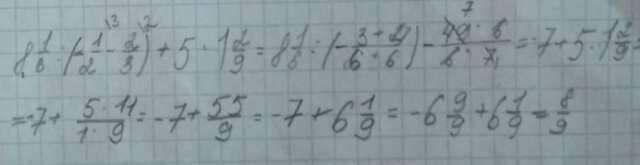 8 1/6 : (-1/2 \3 - 2/3 \2) + 5 · 1 2/9 = 8 1/6 : (-3/6 + 4/6) - 49 · 6 / 6 · 7 = -7 + 5 · 1 2/9 =
= -7 + 5 · 11 / 1 · 9 = -7 + 55/9 = -7 + 6 1/9 = -6 9/9 + 6 1/9 = 8/9